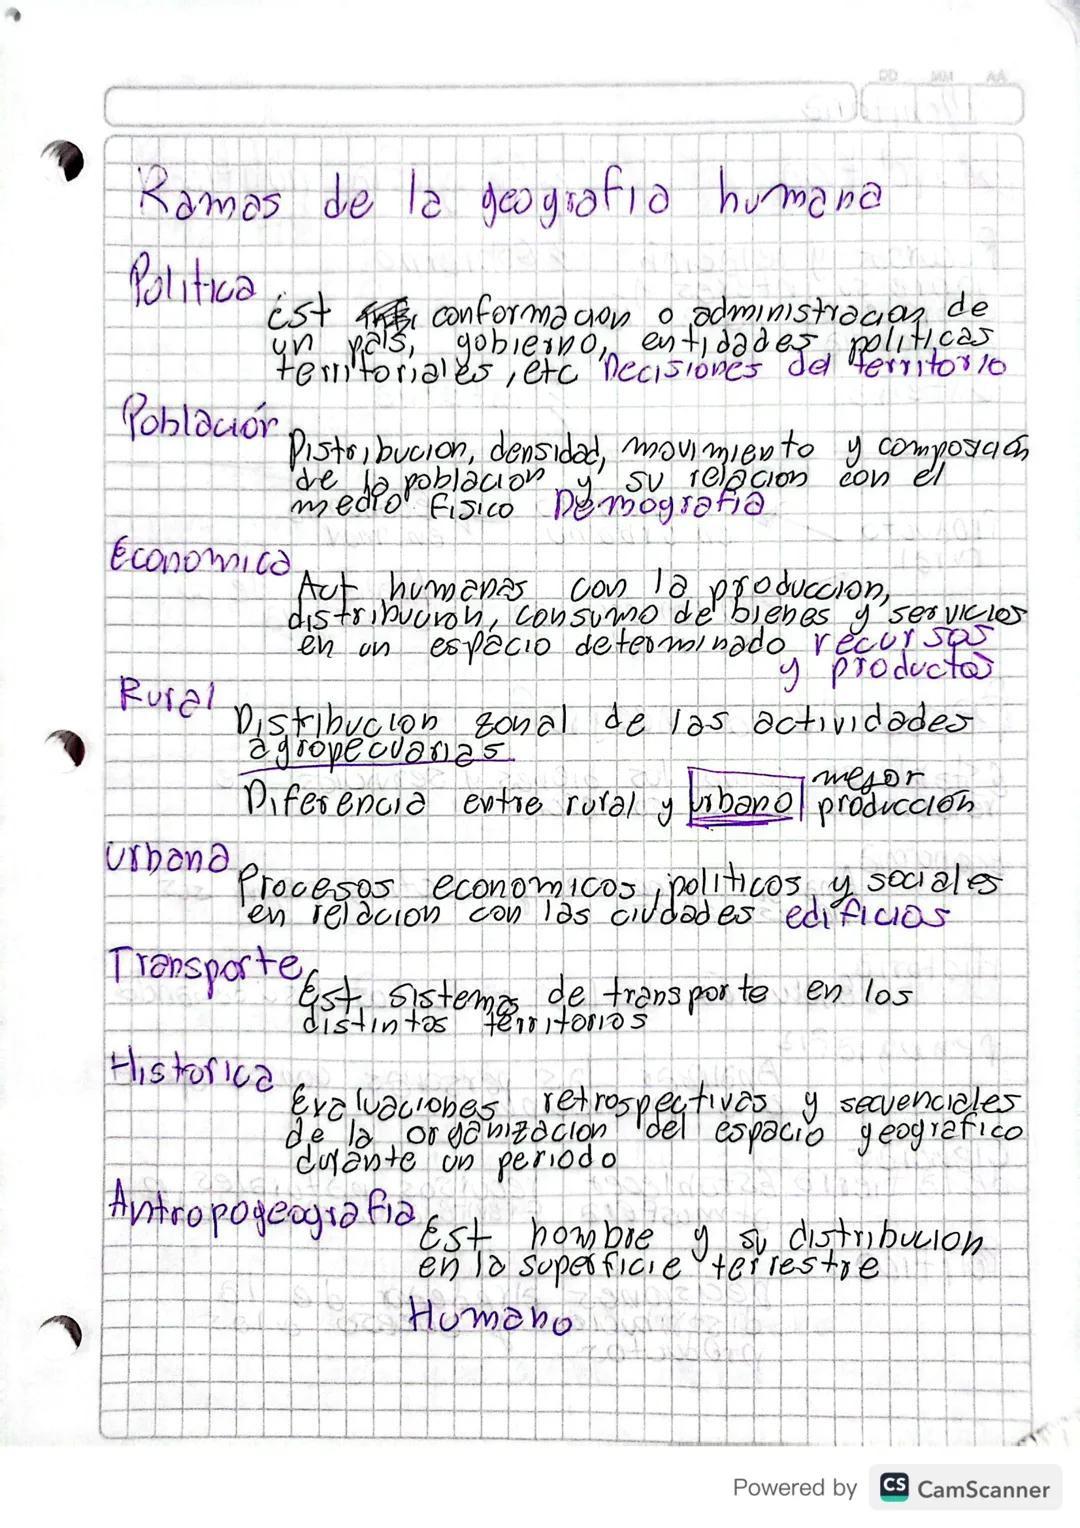 DD MM AA
Ramas de la geografia humana
Politica
Est conformacion o administracion de
un pais, gobierno, entidades politicas
territoriales, etc Decisiones del territorio
Población
Distribucion, densidad, movimiento y composicion
de la poblacion y su relacion con el
medio fisico Demografia
Economica
Act humanas con la produccion,
distribucion, consumo de bienes y servicios
en un espacio determinado recursos
y productos
Rural
Distribucion zonal de las actividades
agropecuarias
Diferencia entre rural y urbano mejor
producción
Urbana
Procesos economicos, politicos y sociales
en relacion con las ciudades edificios
Transporte
Est sistemas de transporte en los
distintos territorios
Historica
Evaluaciones retrospectivas y secuenciales
de la organizacion del espacio geografico
durante un periodo
Antropogeografia
Est hombre y su distribucion
en la superficie terrestre
Humano
Powered by CS CamScanner